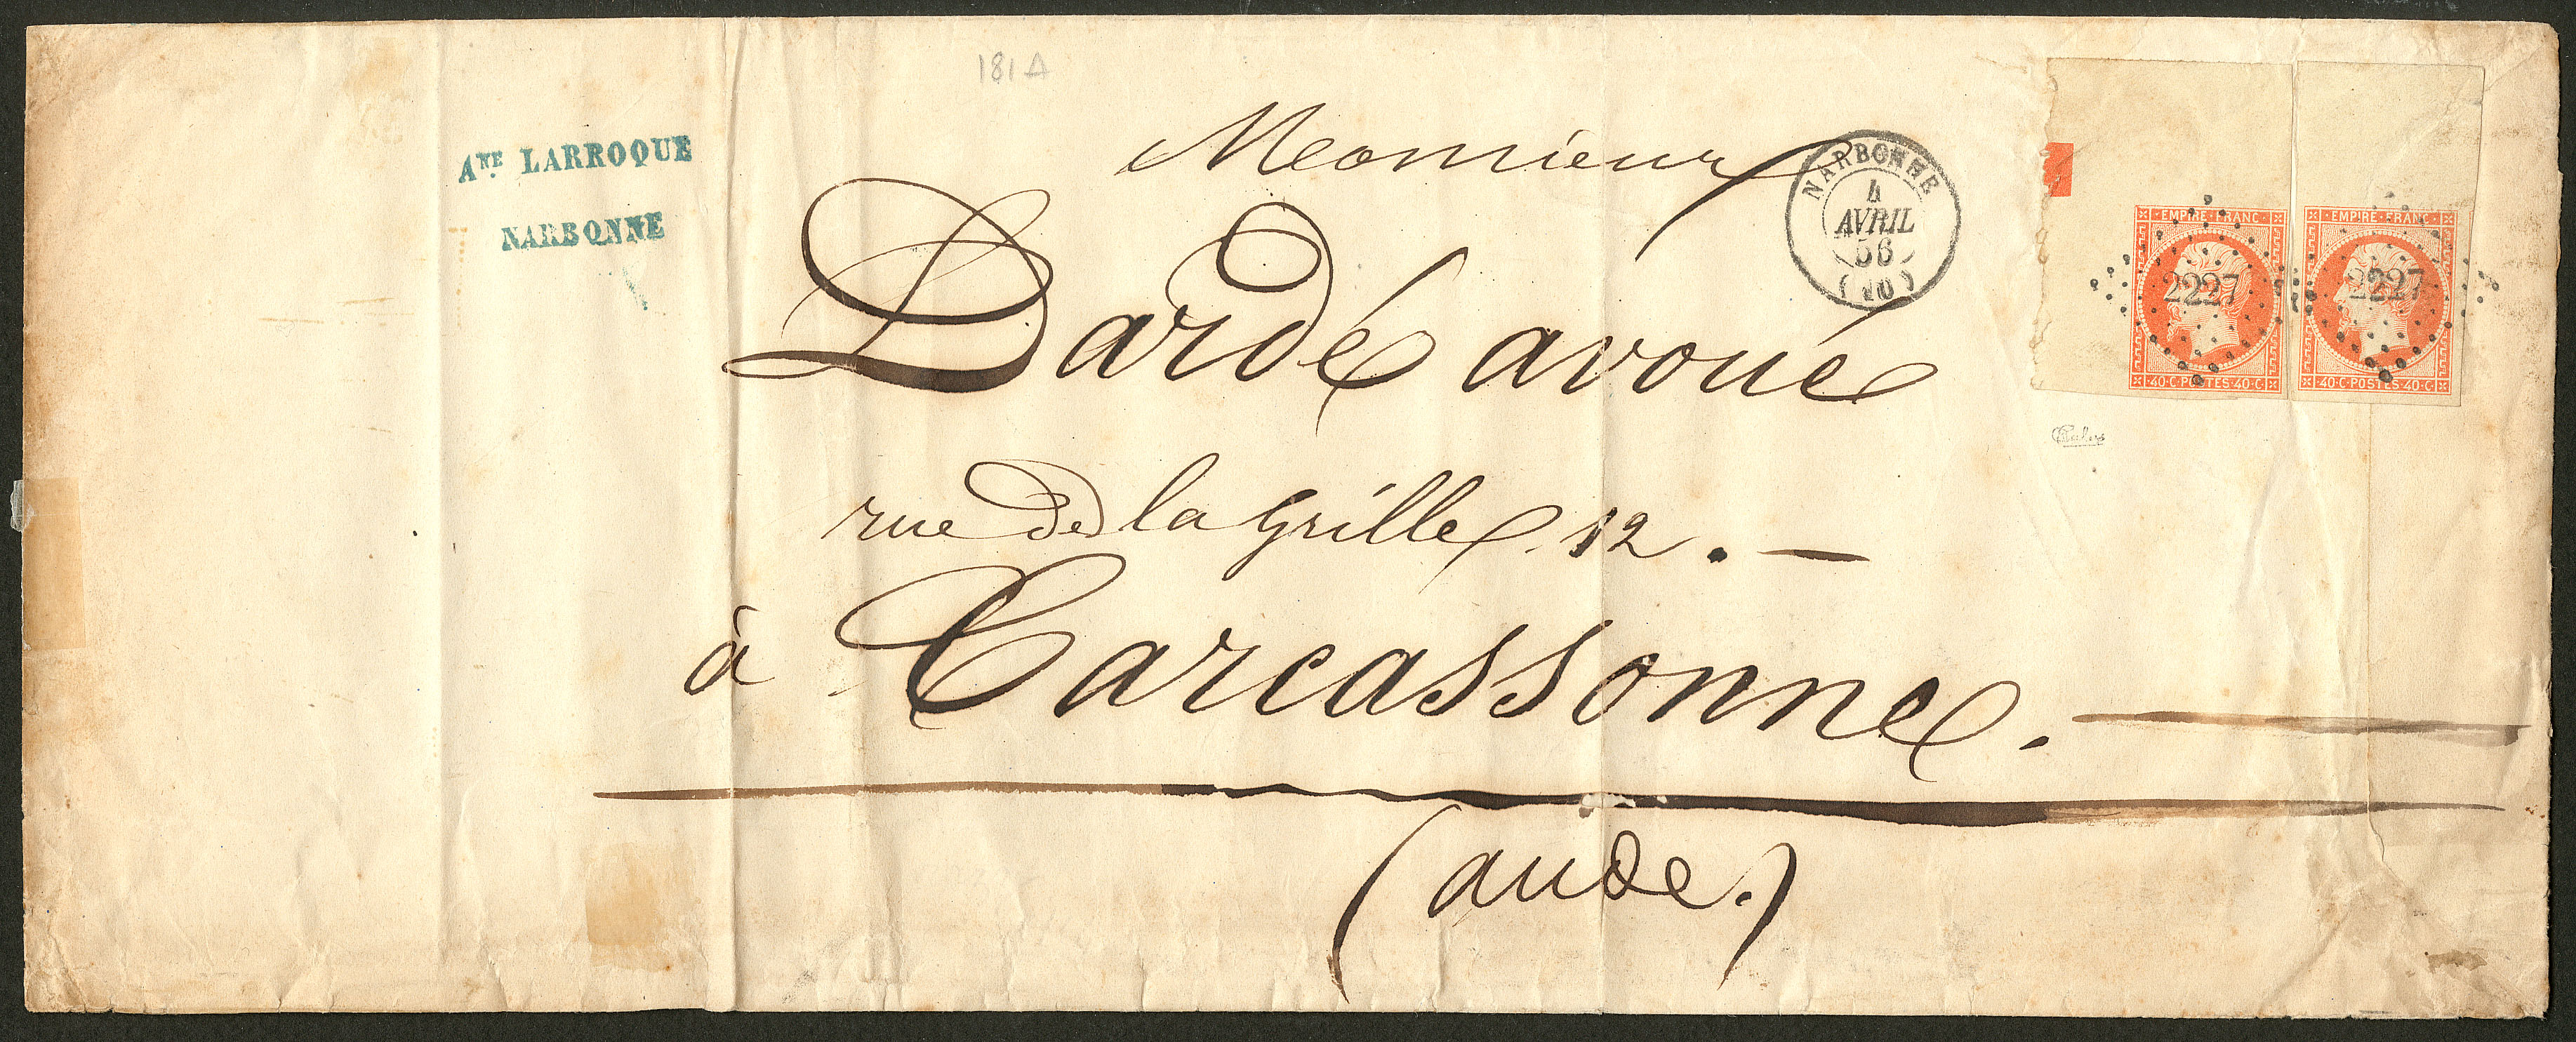 181A
Aᴺᴱ LARROQUE
NARBONNE
Monsieur
Dardé avoué
rue de la Grille. 12. —
à Carcassonne. —
(aude.)
NARBONNE
4
AVRIL
56
(10)
EMPIRE FRANC EMPIRE FRANC
2227 2227
40·C·POSTES·40·C 40·C·POSTES·40·C
Calves